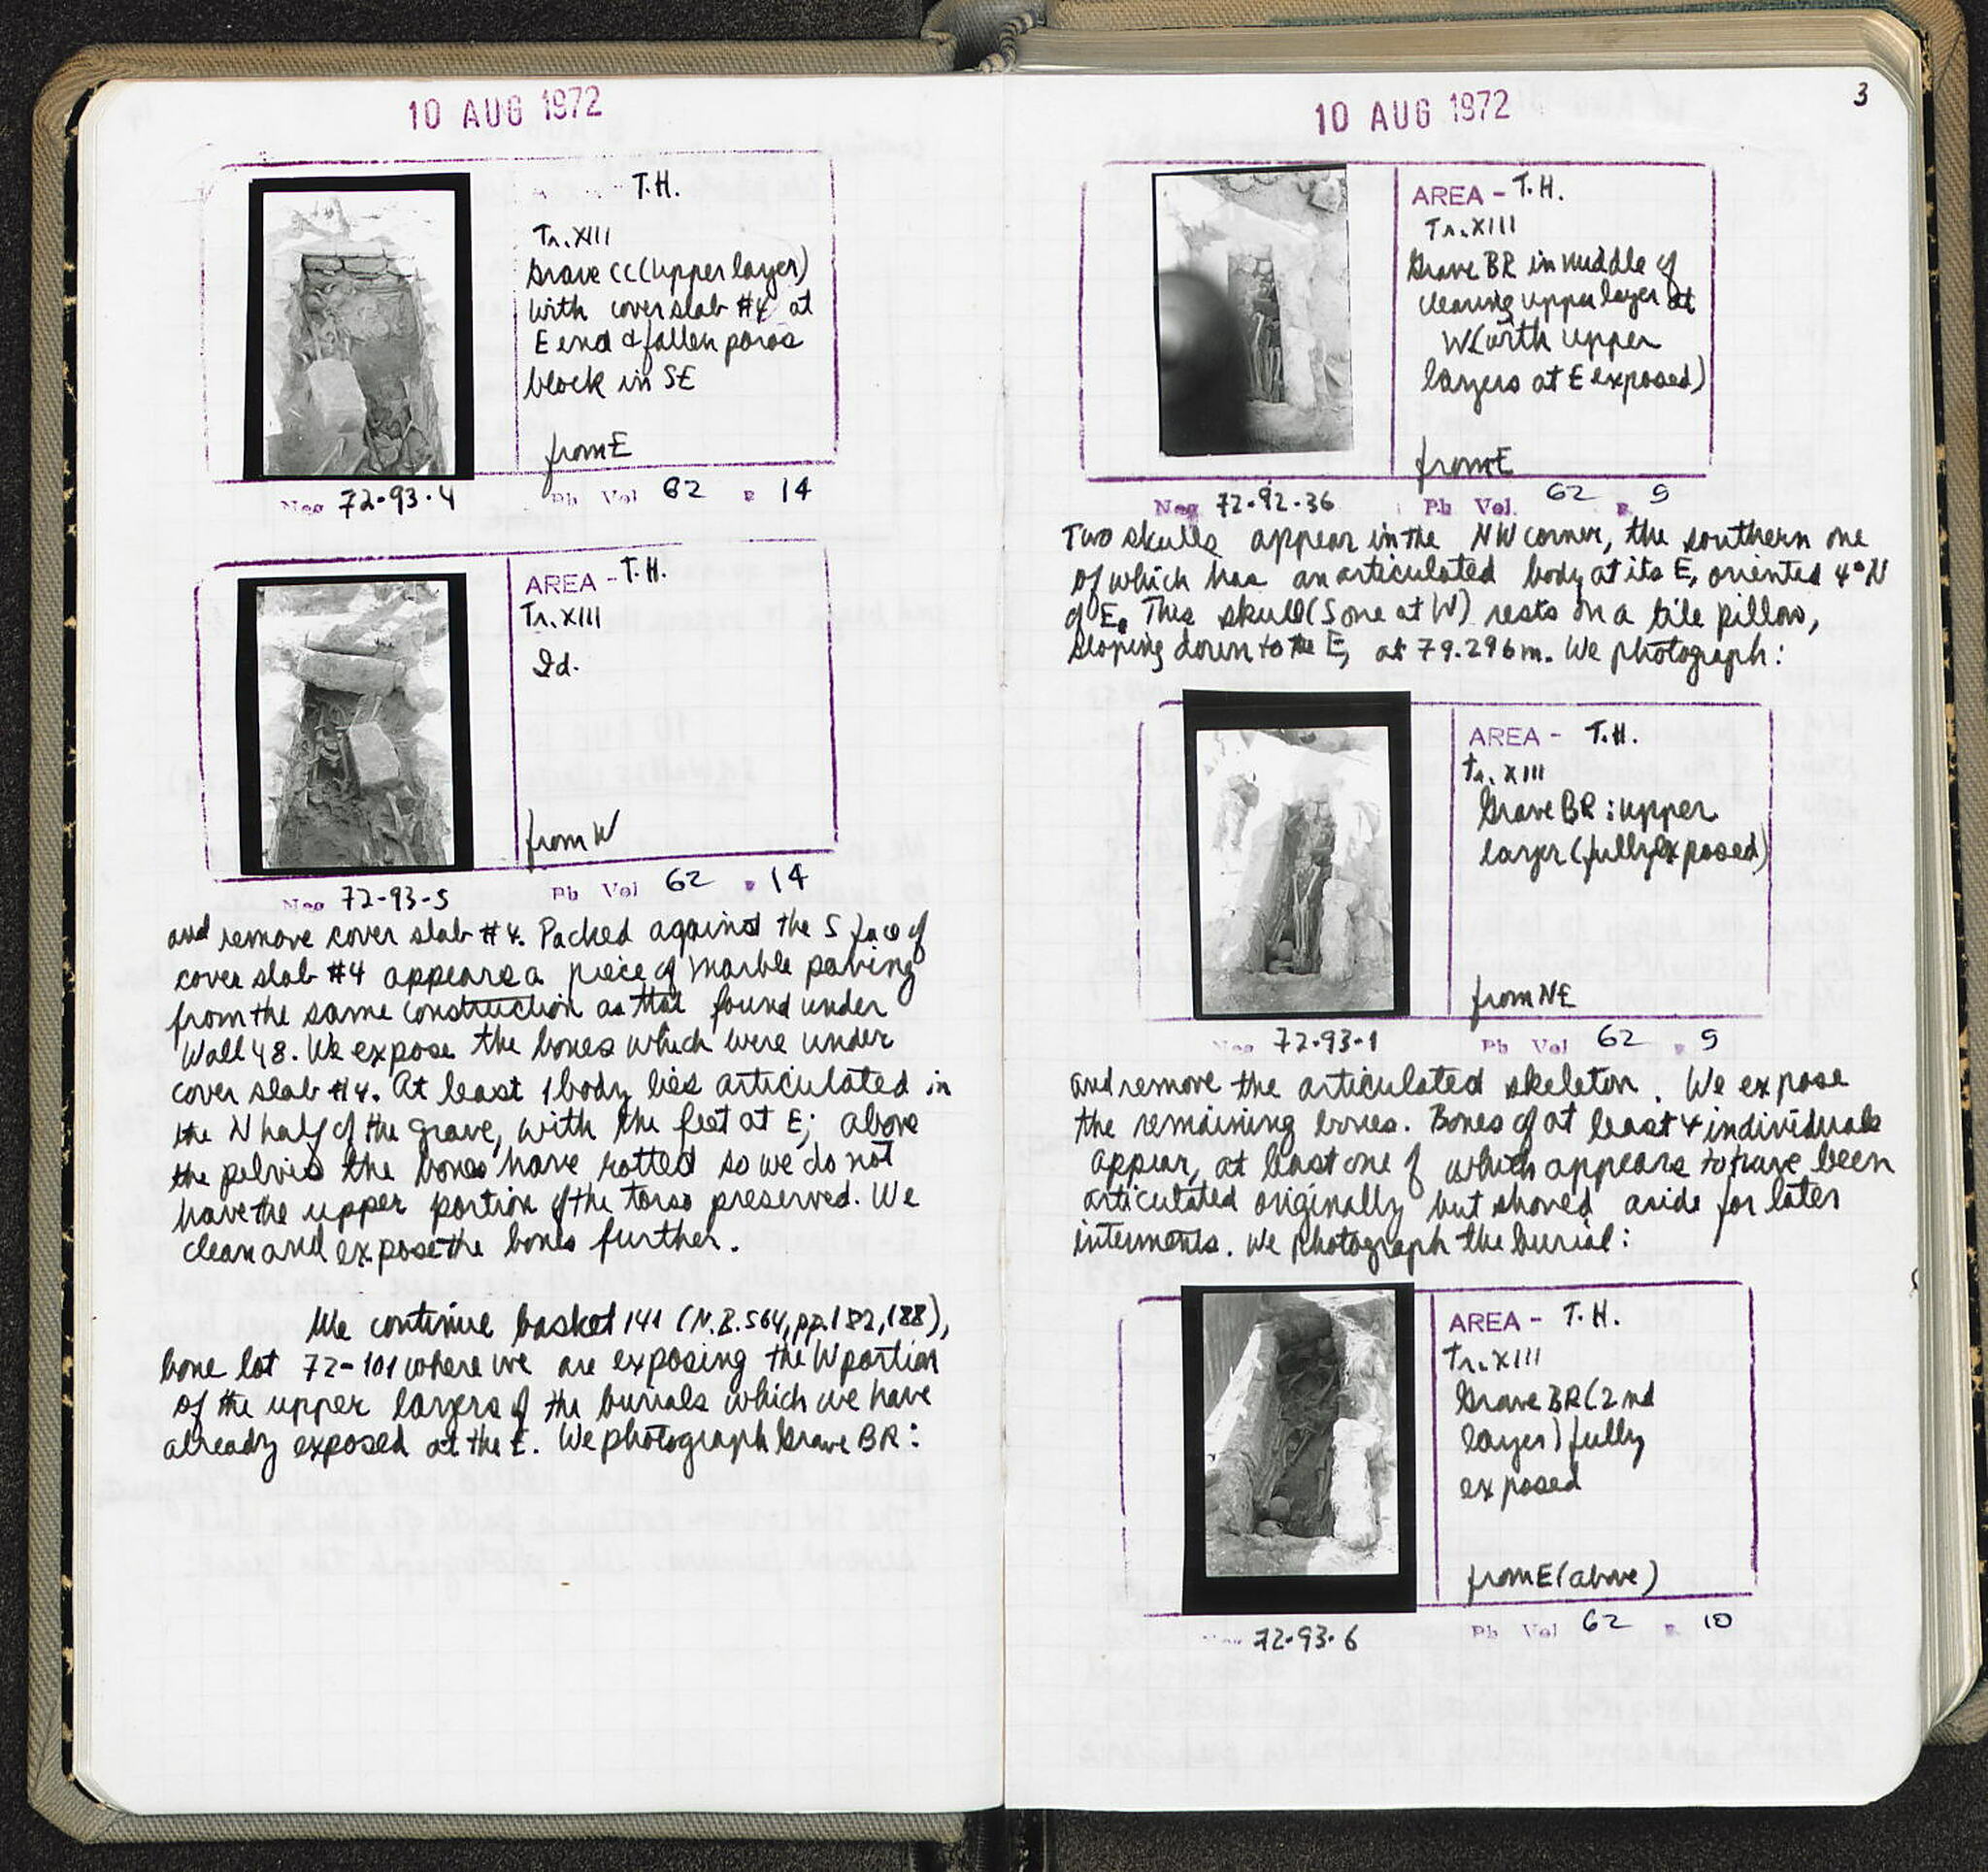 10 AUG 1972
T.H.
Tr. XIII
Grave CC (upper layer)
with cover slab #4 at
E end & fallen poros
block in SE
from E
Neg 72-93-4 Ph Vol 62 p. 14
AREA - T.H.
Tr. XIII
Id.
from W
Neg 72-93-5 Ph Vol 62 p. 14
and remove cover slab #4. Packed against the S face of
cover slab #4 appears a piece of marble paving
from the same construction as that found under
Wall 48. We expose the bones which were under
cover slab #4. At least 1 body lies articulated in
the N half of the grave, with the feet at E; above
the pelvis the bones have rotted so we do not
have the upper portion of the torso preserved. We
clean and expose the bones further.
We continue basket 141 (N.B. 564, pp. 182, 188),
bone lot 72-101 where we are exposing the W portion
of the upper layers of the burials which we have
already exposed at the E. We photograph Grave BR:
10 AUG 1972
3
AREA - T.H.
Tr. XIII
Grave BR in middle of
clearing upper layer at
W (with upper
layers at E exposed)
from E
Neg 72-92-36 Ph Vol. 62 p. 9
Two skulls appear in the NW corner, the southern one
of which has an articulated body at its E, oriented 4° N
of E. This skull (S one at W) rests on a tile pillow,
sloping down to the E, at 79.296 m. We photograph:
AREA - T.H.
Tr. XIII
Grave BR: upper
layer (fully exposed)
from NE
Neg 72-93-1 Ph Vol 62 p. 9
and remove the articulated skeleton. We expose
the remaining bones. Bones of at least 4 individuals
appear, at least one of which appears to have been
articulated originally but shoved aside for later
interments. We photograph the burial:
AREA - T.H.
Tr. XIII
Grave BR (2nd
layer) fully
exposed
from E (above)
72-93-6 Ph Vol 62 p. 10